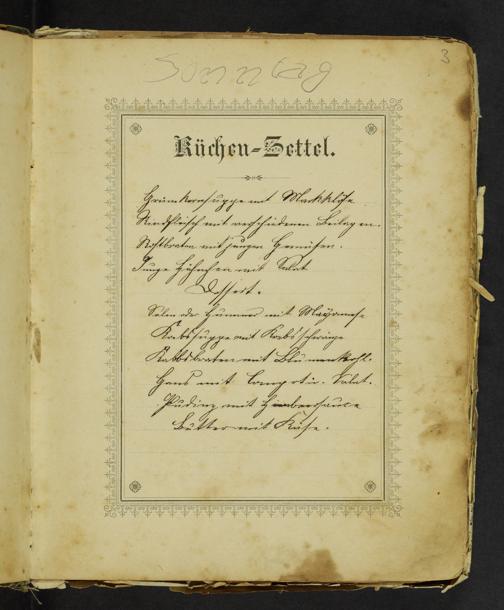 3
Sonntag
Küchen-Zettel.
Grünkernsuppe mit Markklöße
Rindfleisch mit verschiedenen Beilagen.
Rostbraten mit jungen Gemüsen.
Junge Hühnchen mit Salat
Dessert.
Salm oder Hummer mit Mayonnese
Krebssuppe mit Krebsschwänze
Kalbsbraten mit Blumenkohl.
Gans mit Compot u. Salat.
Pudding mit Himbeersauce
Butter mit Käse.